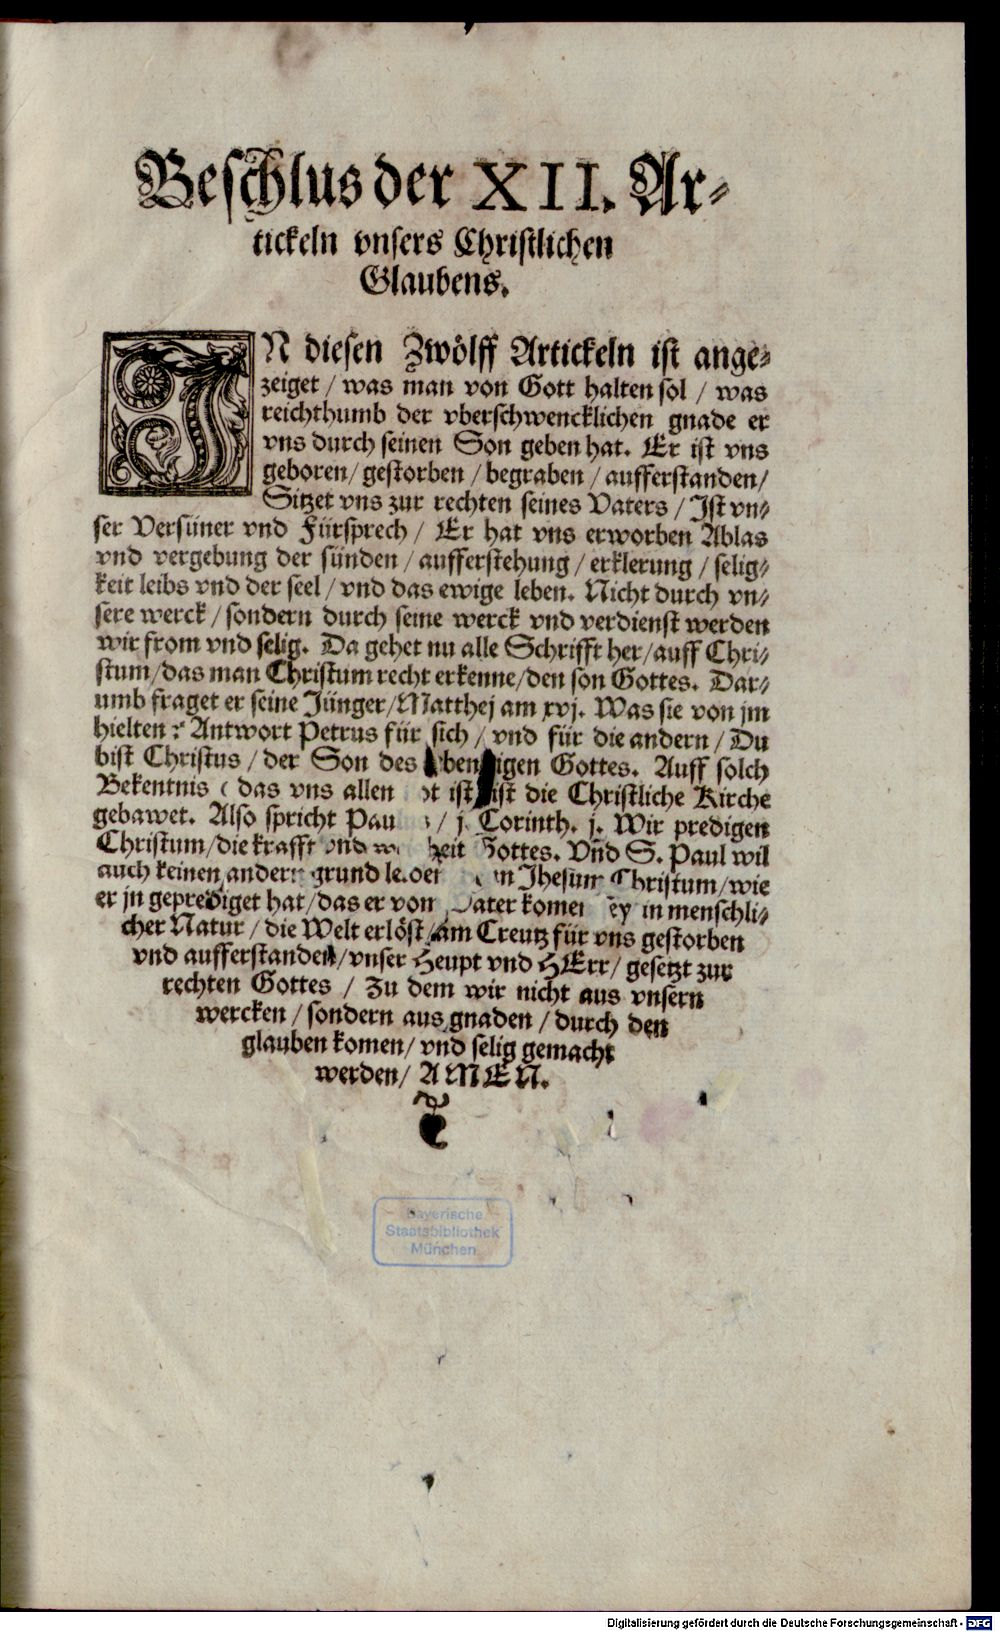 Beschlus der XII. Ar-
tickeln vnsers Christlichen
Glaubens.
IN diesen Zwölff Artickeln ist ange-
zeiget / was man von Gott halten sol / was
reichthumb der vberschwencklichen gnade er
vns durch seinen Son geben hat. Er ist vns
geboren / gestorben / begraben / aufferstanden /
Sitzet vns zur rechten seines Vaters / Ist vn-
ser Versüner vnd Fürsprech / Er hat vns erworben Ablas
vnd vergebung der sünden / aufferstehung / erklerung / selig-
keit leibs vnd der seel / vnd das ewige leben. Nicht durch vn-
sere werck / sondern durch seine werck vnd verdienst werden
wir from vnd selig. Da gehet nu alle Schrifft her / auff Chri-
stum / das man Christum recht erkenne / den son Gottes. Dar-
umb fraget er seine Jünger / Matthej am xvj. Was sie von jm
hielten? Antwort Petrus für sich / vnd für die andern / Du
bist Christus / der Son des Gottes. Auff solch
Bekentnis das vns allen ist ist die Christliche Kirche
gebawet. Also spricht / j. Corinth. j. Wir predigen
Christum / die krafft vnd Gottes. Vñd S. Paul wil
auch keinen andern grund Jhesum Christum / wie
er jn geprediget hat / das er vom Vater komen sey in menschli-
cher Natur / die Welt erlöst / am Creutz für vns gestorben
vnd aufferstanden / vnser Heupt vnd HErr / gesetzt zur
rechten Gottes / Zu dem wir nicht aus vnsern
wercken / sondern aus gnaden / durch den
glauben komen / vnd selig gemacht
werden / AMEN.
Bayerische
Staatsbibliothek
München
Digitalisierung gefördert durch die Deutsche Forschungsgemeinschaft - DFG